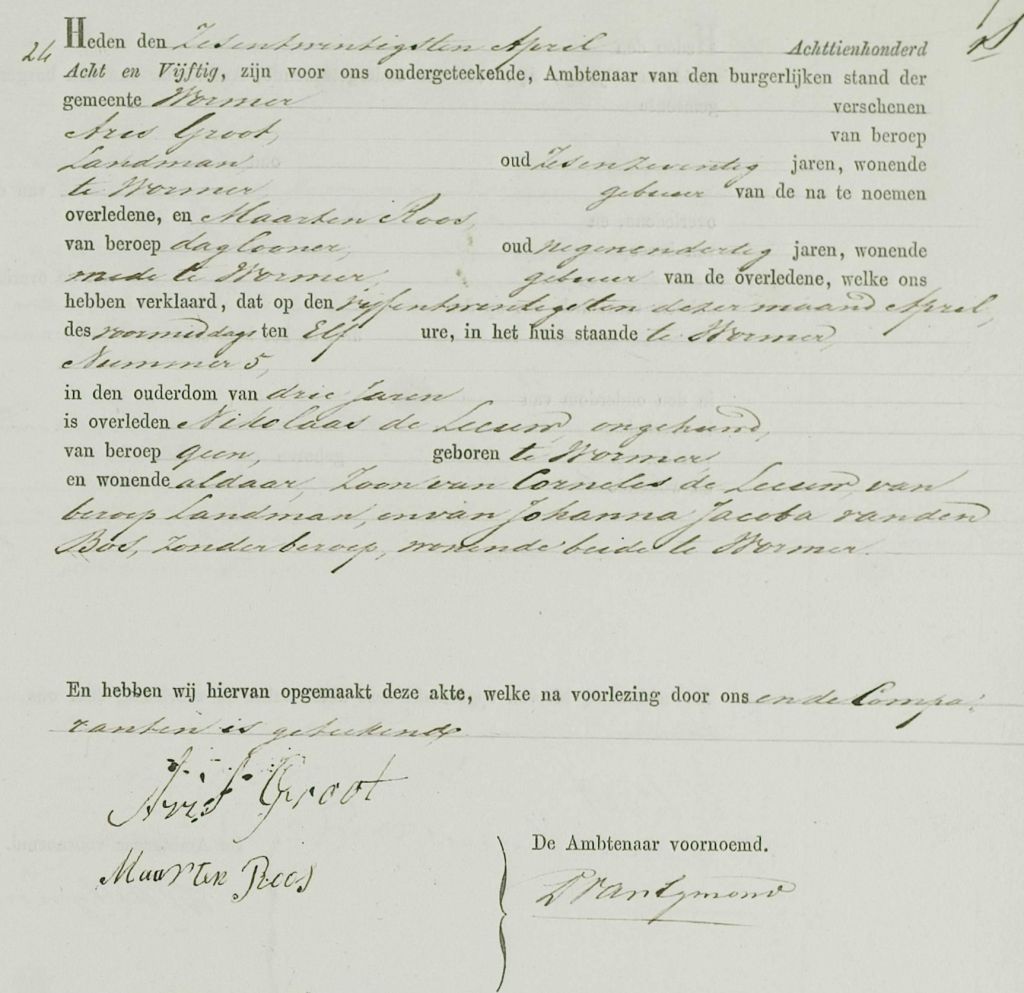 24
Heden den Zesentwintigsten April Achttienhonderd
Acht en Vijftig, zijn voor ons ondergeteekende, Ambtenaar van den burgerlijken stand der
gemeente Wormer verschenen
Aris Groot, van beroep
Landman, oud Zesenzeventig jaren, wonende
te Wormer gebuur van de na te noemen
overledene, en Maarten Roos,
van beroep daglooner, oud negenendertig jaren, wonende
mede te Wormer, gebuur van de overledene, welke ons
hebben verklaard, dat op den vijfentwintigsten dezer maand April,
des voormiddags ten Elf ure, in het huis staande te Wormer,
Nummer 5,
in den ouderdom van drie Jaren
is overleden Nikolaas de Leeuw, ongehuwd,
van beroep geen, geboren te Wormer
en wonende aldaar, Zoon van Cornelis de Leeuw, van
beroep Landman, en van Johanna Jacoba van den
Bos, zonder beroep, wonende beide te Wormer.
En hebben wij hiervan opgemaakt deze akte, welke na voorlezing door ons en de Compa-
ranten is geteekend
Aris Groot
Maarten Roos
De Ambtenaar voornoemd.